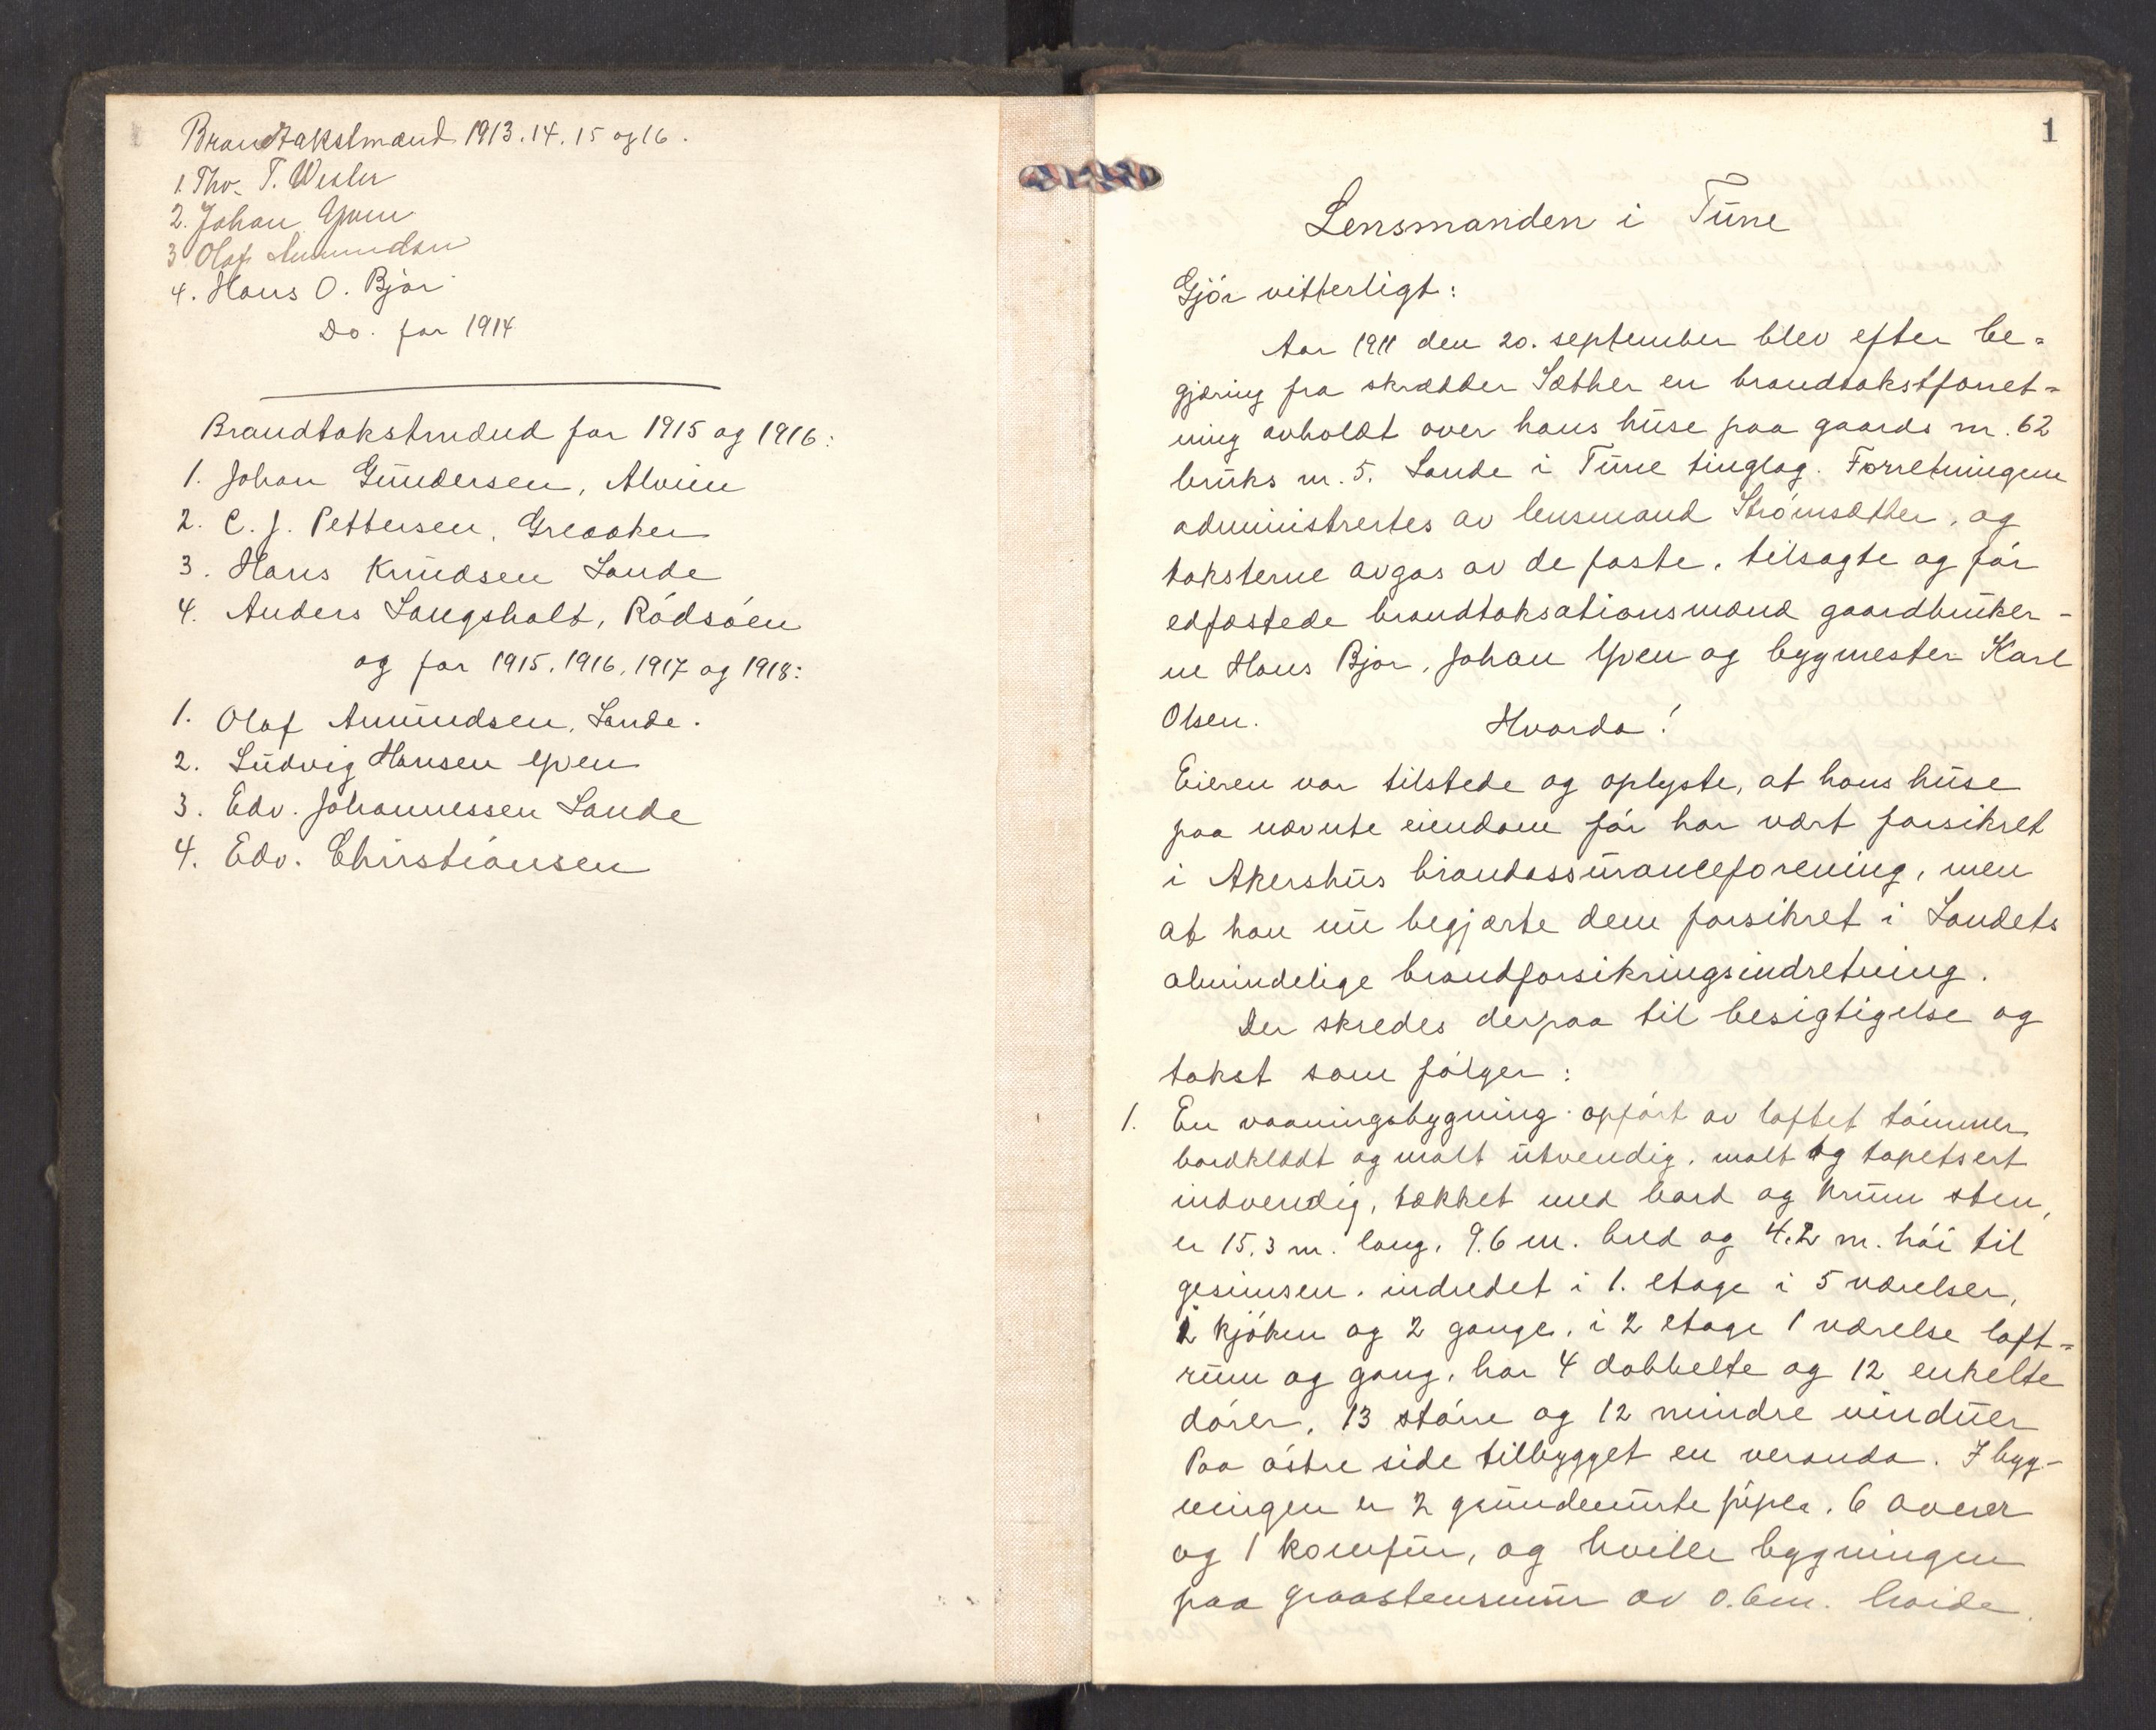 Brandtakstmænd 1913.14.15 og 16.
1. Thv. T. Wester
2. Johan Yven
3 Olaf Amundsen
4. Hans O. Bjør
Do. for 1914
Brandtakstmænd for 1915 og 1916:
1. Johan Gundersen, Alvim
2. C. J. Pettersen, Greaaker
3. Hans Knudsen Lande
4. Anders Langsholt, Rødsøen
og for 1915, 1916, 1917 og 1918:
1. Olaf Amundsen, Lande.
2. Ludvig Hansen Yven
3. Edv. Johannessen Lande
4. Edv. Christiansen
1
Lensmanden i Tune
Gjør vitterligt:
Aar 1911 den 20. september blev efter be=
gjæring fra skrædder Sæther en brandtakstforret=
ning avholdt over hans huse paa gaards nr. 62
bruks nr. 5. Lande i Tune tinglag. Forretningen
administrertes av lensmand Strømsæther, og
taksterne avgas av de faste, tilsagte og før
edfæstede brandtaksationsmænd gaardbruker-
ne Hans Bjør, Johan Yven og bygmester Karl
Olsen. Hvorda!
Eieren var tilstede og oplyste, at hans huse
paa nævnte eiendom før har vært forsikret
i Akershus brandassuranceforening, men
at han nu begjærte dem forsikret i Landets
almindelige brandforsikringsindretning.
Der skredes derpaa til besigtigelse og
takst som følger:
1. En vaaningsbygning opført av laftet tømmer
bordklædt og malt utvendig, malt og tapetsert
indvendig, tækket med bord og krum sten,
er 15.3 m. lang, 9.6 m. bred og 4.2 m. høi til
gesimsen, indredet i 1. etage i 5 værelser,
2 kjøken og 2 gange, i 2 etage 1 værelse loft=
rum og gang, har 4 dobbelte og 12 enkelte
dører, 13 større og 12 mindre vinduer
Paa østre side tilbygget en veranda. I byg-
ningen er 2 grundmurte piper, 6 ovner
og 1 komfur, og hviler bygningen
paa graastensmur av 0.6m. høide.